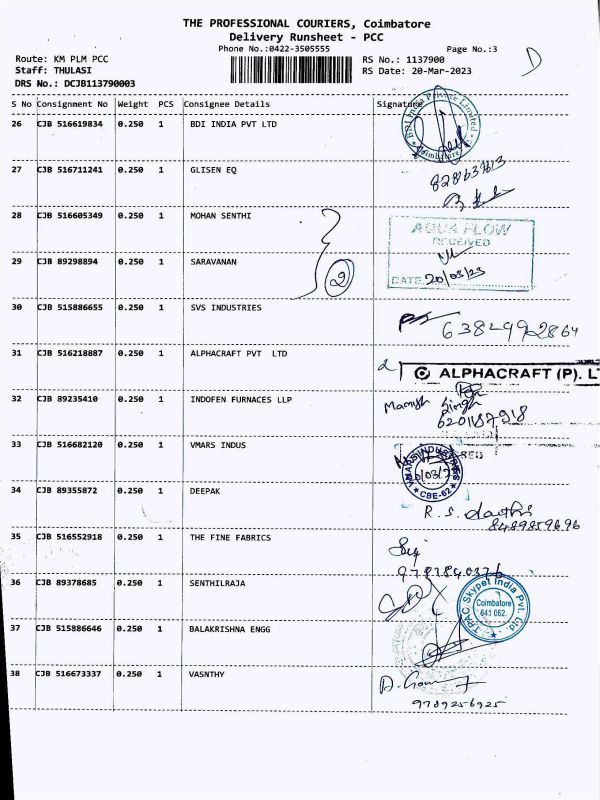 THE PROFESSIONAL COURIERS, Coimbatore
Delivery Runsheet - PCC
Phone No.:0422-3505555
Page No.:3
D
Route: KM PLM PCC
RS No.: 1137900
Staff: THULASI
RS Date: 20-Mar-2023
DRS No.: DCJB113790003
S No Consignment No Weight PCS Consignee Details Signature
26 CJB 516619834 0.250 1 BDI INDIA PVT LTD
BDI India Private Limited
Coimbatore
27 CJB 516711241 0.250 1 GLISEN EQ
28 CJB 516605349 0.250 1 MOHAN SENTHI
AQUA FLOW
RECEIVED
29 CJB 89298894 0.250 1 SARAVANAN
2
DATE 20/03/23
30 CJB 515886655 0.250 1 SVS INDUSTRIES
6382992864
31 CJB 516218887 0.250 1 ALPHACRAFT PVT LTD
ALPHACRAFT (P). LT
32 CJB 89235410 0.250 1 INDOFEN FURNACES LLP
Manish Singh
6201187918
33 CJB 516682120 0.250 1 VMARS INDUS
VMARS INDUSTRIES
CBE-62
34 CJB 89355872 0.250 1 DEEPAK
R. S.
8489859696
35 CJB 516552918 0.250 1 THE FINE FABRICS
9787840376
36 CJB 89378685 0.250 1 SENTHILRAJA
TPAC Skypet India Pvt. Ltd.
Coimbatore
641 062.
37 CJB 515886646 0.250 1 BALAKRISHNA ENGG
38 CJB 516673337 0.250 1 VASNTHY
9789256925